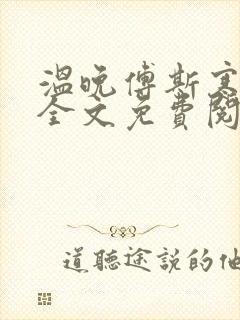 温晚傅斯寒
全文免費閱
道聽途説的他